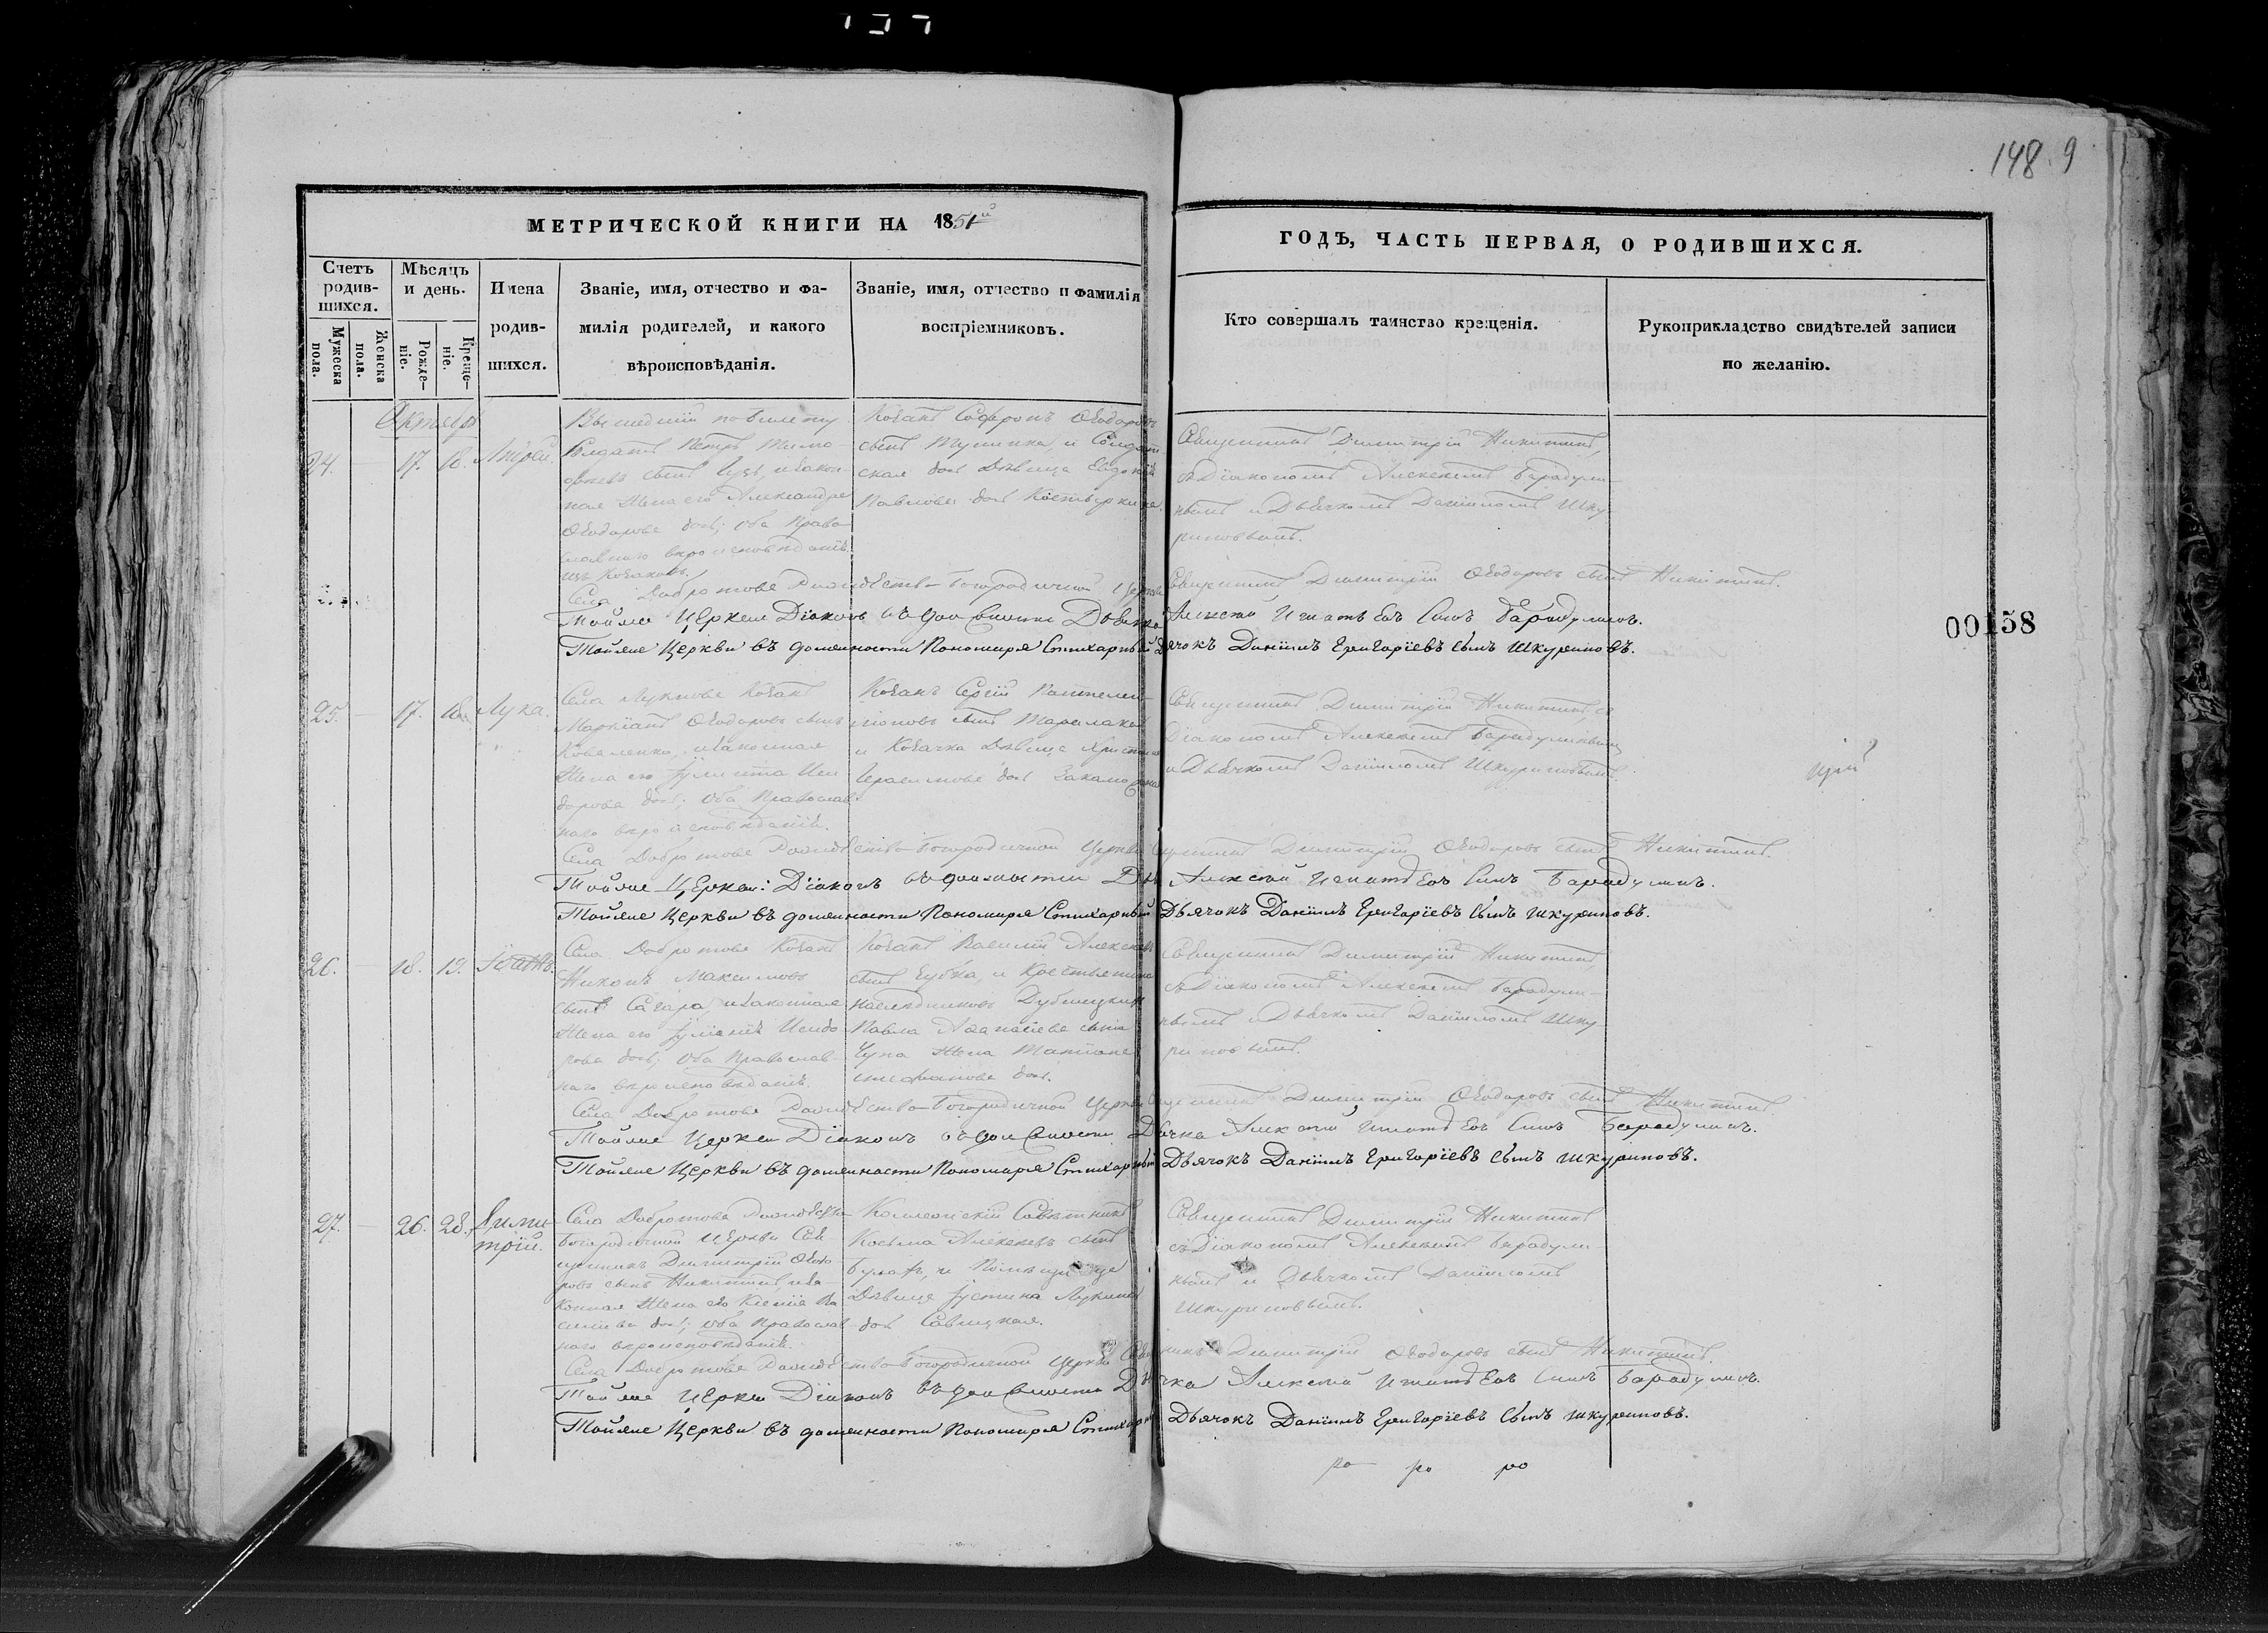 148. 9
МЕТРИЧЕСКОЙ КНИГИ НА 1851й
ГОДЪ, ЧАСТЬ ПЕРВАЯ, О РОДИВШИХСЯ.
Счетъ родив-шихся.
Мужеска пола.
Женска пола.
Мѣсяцъ и день.
Рожде-ніе.
Креще-ніе.
Имена
родив-
шихся.
Званіе, имя, отчество и фа-
милія родителей, и какого
вѣроисповѣданія.
Званіе, имя, отчество и фамилія
воспріемниковъ.
Кто совершалъ таинство крещенія.
Рукоприкладство свидѣтелей записи
по желанію.
24. 17. 18.
Солдатъ Петръ Тимо-
фѣевъ сынъ и закон-
ная жена его Александра
Ѳеодорова доч; оба Право
славнаго вѣроисповѣданія.
изъ Козаковъ.
Козакъ Софронъ Ѳеодоровъ
сынъ и Солдат-
ская доч дѣвица Евдокія
Павлова доч
Священникъ Димитрій Никитинъ,
съ Діакономъ Алексѣемъ Барадули-
нымъ и Дьячкомъ Даніиломъ Шку
риновымъ.
Села Добротова Рождество-Богородичной Церкви Священникъ Димитрій Ѳеодоровъ сынъ Никитинъ.
Тойже Церкви Діаконъ въ должности Дьячка Алексѣй Игнатьевъ Сынъ Барадулинъ.
Тойже Церкви въ должности Пономаря Стихарный Дьячокъ Даніилъ Григоріевъ сынъ Шкуриновъ.
00158
25. 17. 18. Лука.
Села Лукнова Козакъ
Маркіанъ Ѳеодоровъ сынъ
Коваленко, и законная
жена его Іулитта Иси
дорова доч; оба Православ
наго вѣроисповѣданія.
Козакъ Сергій Пантелеи-
моновъ сынъ
и Козачка дѣвица Христина
Герасимова доч
Священникъ Димитрій Никитинъ, съ
Діакономъ Алексѣемъ Барадулинымъ
и Дьячкомъ Даніиломъ Шкуриновымъ.
Села Добротова Рождество-Богородичной Церкви Священникъ Димитрій Ѳеодоровъ сынъ Никитинъ.
Тойже Церкви Діаконъ въ должности Дьячка Алексѣй Игнатьевъ Сынъ Барадулинъ.
Тойже Церкви въ должности Пономаря Стихарный Дьячокъ Даніилъ Григоріевъ сынъ Шкуриновъ.
26. 18. 19. Іоаннъ.
Села Добротова Козакъ
Никонъ Максимовъ
сынъ Сагара, и законная
жена его Іуліанія Исидо
рова доч; оба Православ-
наго вѣроисповѣданія.
Козакъ Василій Алексѣевъ
сынъ Губка, и Крестьянина
наслѣдниковъ
Павла Аѳанасіева сына
Чупа жена Татіана
Стефанова доч.
Священникъ Димитрій Никитинъ,
съ Діакономъ Алексѣемъ Барадули-
нымъ и Дьячкомъ Даніиломъ Шку
риновымъ.
Села Добротова Рождество-Богородичной Церкви Священникъ Димитрій Ѳеодоровъ сынъ Никитинъ
Тойже Церкви Діаконъ въ должности Дьячка Алексѣй Игнатьевъ Сынъ Барадулинъ.
Тойже Церкви въ должности Пономаря Стихарный Дьячокъ Даніилъ Григоріевъ сынъ Шкуриновъ.
27. 26. 28. Дими-
трій.
Села Добротова Рождество
Богородичной Церкви Свя
щенникъ Димитрій Ѳеодо
ровъ сынъ Никитинъ, и за-
конная жена его Ксенія Ва
силіева доч; оба Православ-
наго вѣроисповѣданія.
Коллежскій Совѣтникъ
Косьма Алексѣевъ сынъ
и Помѣщица
дѣвица Іустина Лукина
доч Савицкая.
Священникъ Димитрій Никитинъ
съ Діакономъ Алексѣемъ Барадули-
нымъ и Дьячкомъ Даніиломъ
Шкуриновымъ.
Села Добротова Рождество-Богородичной Церкви Священникъ Димитрій Ѳеодоровъ сынъ Никитинъ.
Тойже Церкви Діаконъ въ должности Дьячка Алексѣй Игнатьевъ Сынъ Барадулинъ.
Тойже Церкви въ должности Пономаря Стихарный Дьячокъ Даніилъ Григоріевъ сынъ Шкуриновъ.